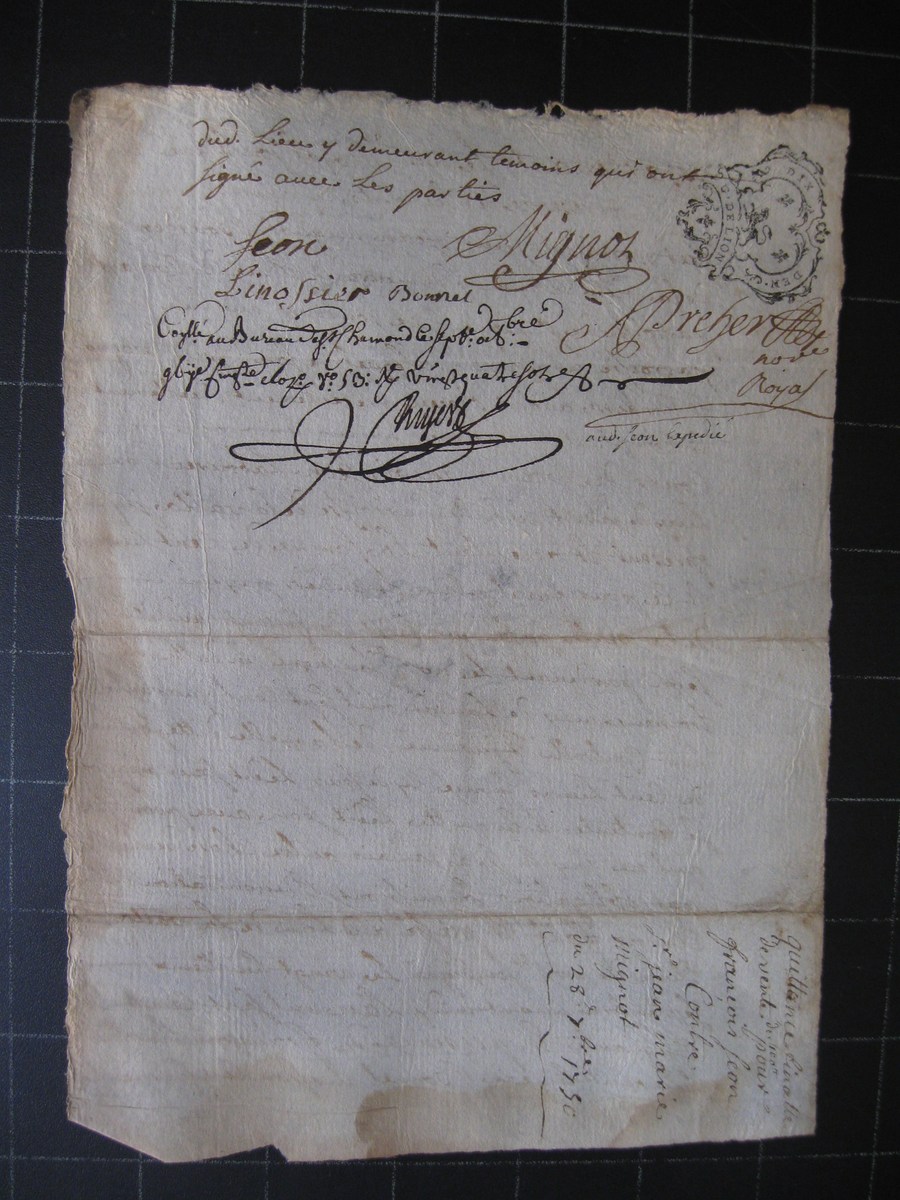 dud. Lieu y demeurant temoins qui ont
signé avec Les parties
G. DE LION
DIX DEN.
feon
Mignot
Linossier Bonnet
Dreher
au Bureau de St Chamond le sept. 8bre
notre
Royal
vingt quatre sols
aud. feon Expedié
quittance finale
de vente pour
françois feon
Contre
Sr. jean marie
Mignot
du 28e 7bre 1750